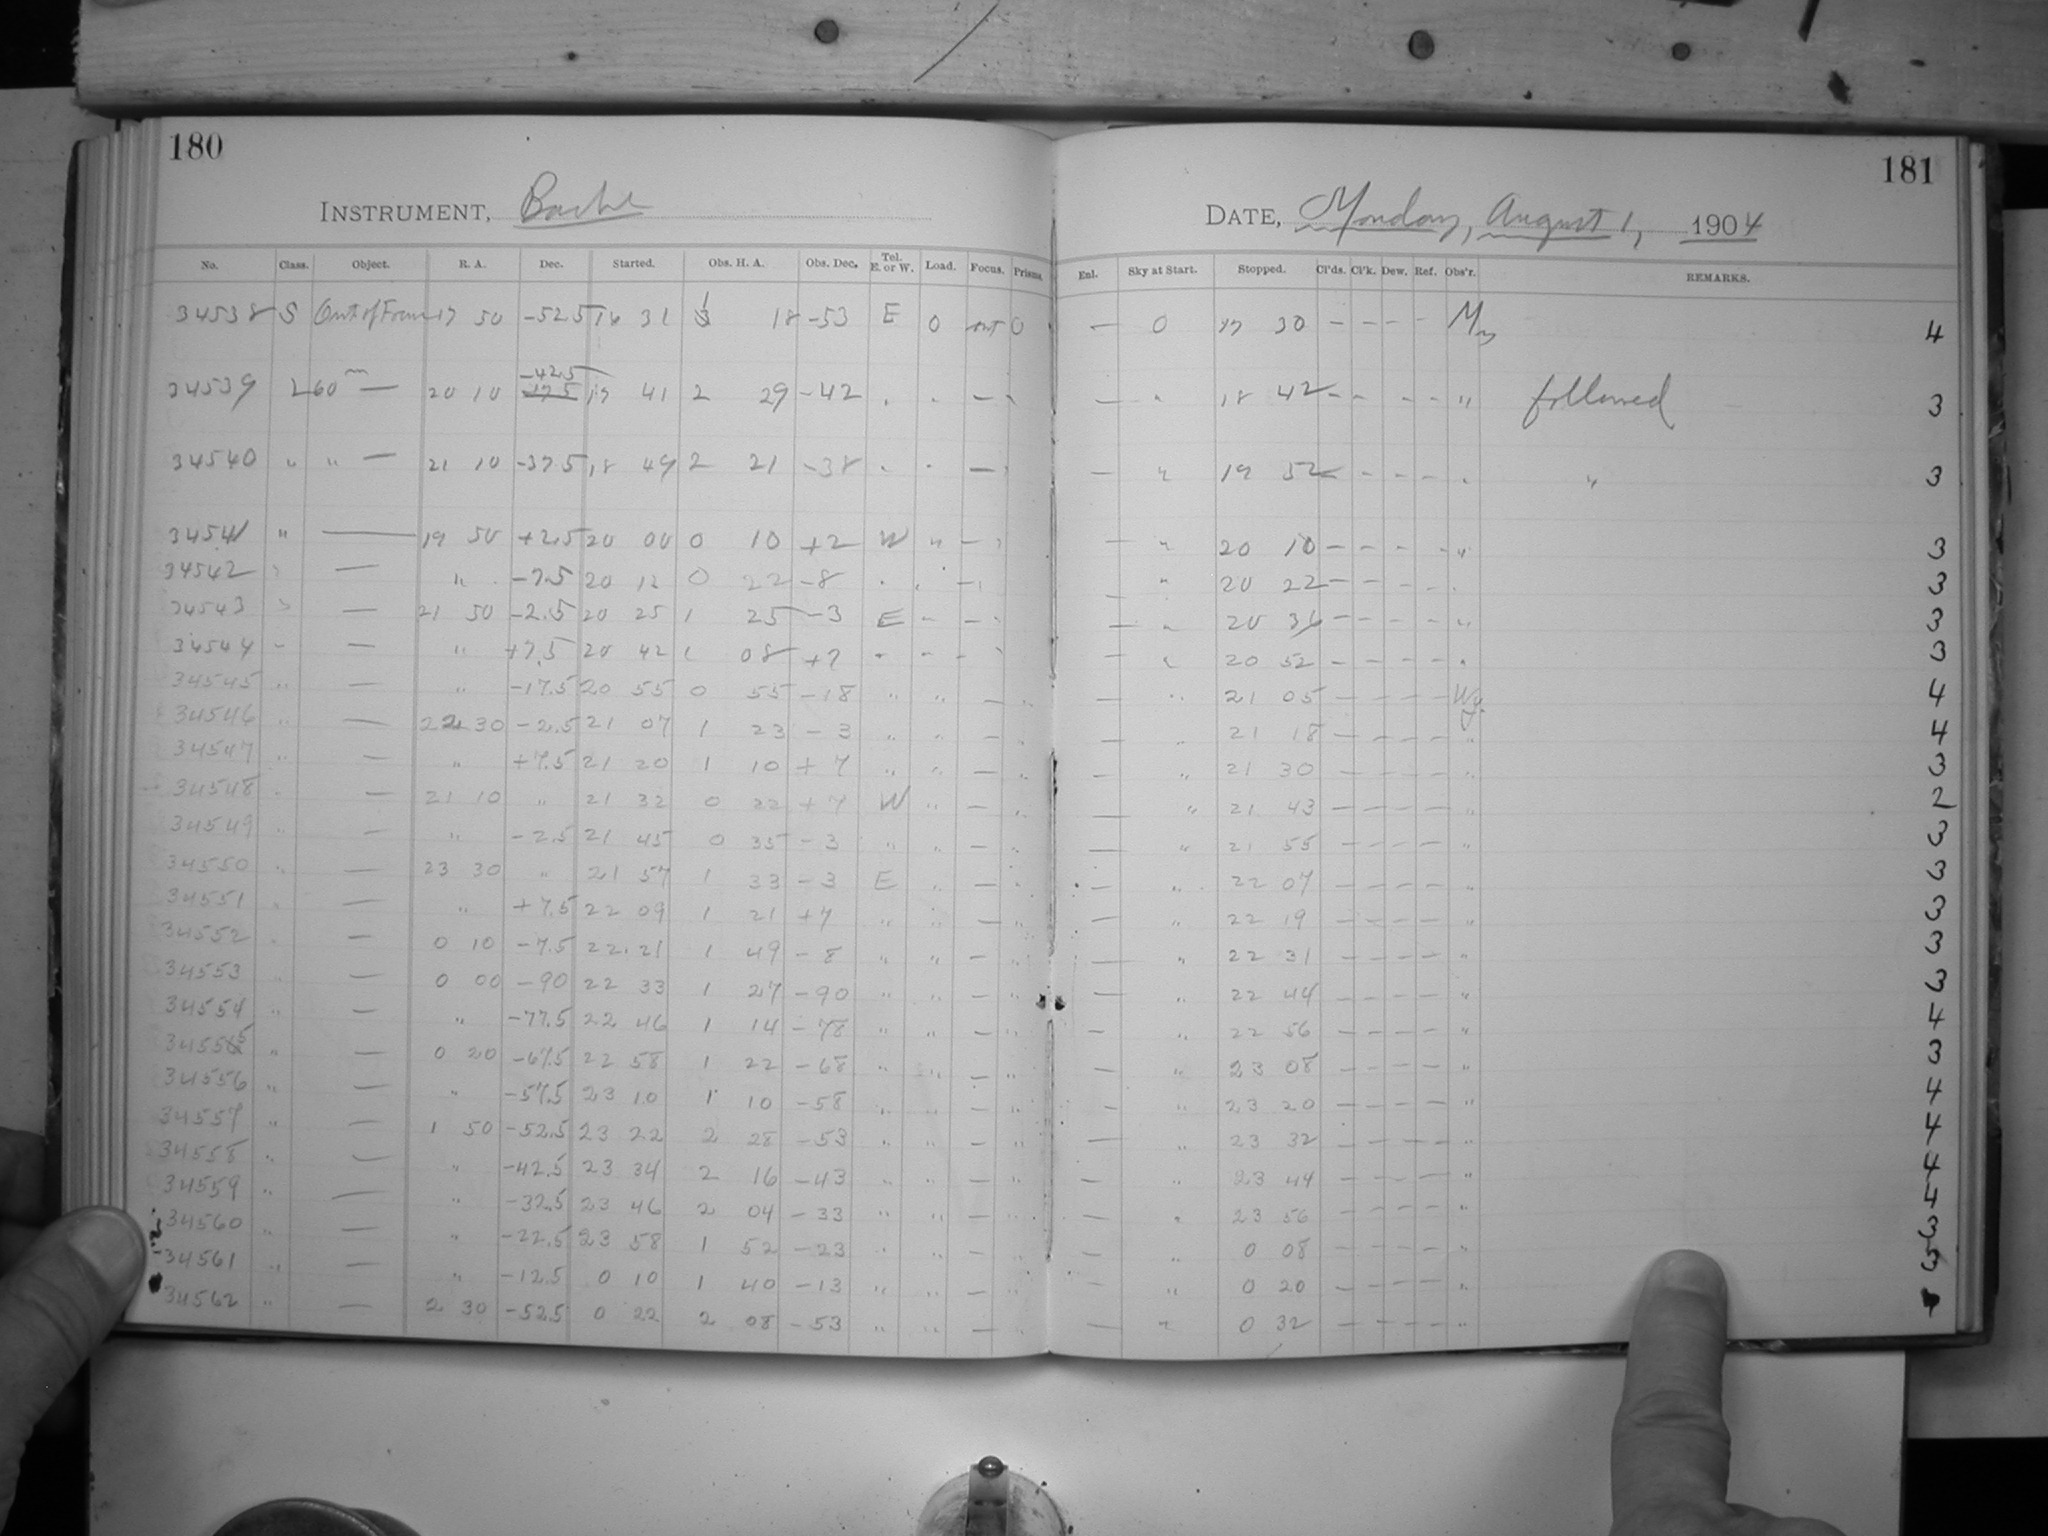 180
INSTRUMENT, Bache
No. Class. Object. R. A. Dec. Started. Obs. H. A. Obs. Dec. Tel. E. or W. Load. Focus. Prisms.
34538 S Out of Focus 17 50 -52.5 16 31 1 18 -53 E 0 out 0
34539 L 60m — 20 10 -42.5 17 41 2 29 -42 . . — "
34540 " " — 21 10 -37.5 18 49 2 21 -38 . . — "
34541 " — 19 50 +2.5 20 00 0 10 +2 W " — "
34542 " — " -7.5 20 12 0 22 -8 . . — "
34543 " — 21 50 -2.5 20 25 1 25 -3 E " — "
34544 " — " +7.5 20 42 1 08 +7 " " — "
34545 " — " -17.5 20 55 0 55 -18 " " — "
34546 " — 22 30 -2.5 21 07 1 23 -3 " " — "
34547 " — " +7.5 21 20 1 10 +7 " " — "
34548 " — 21 10 " 21 32 0 22 +7 W " — "
34549 " — " -2.5 21 45 0 35 -3 " " — "
34550 " — 23 30 " 21 57 1 33 -3 E " — "
34551 " — " +7.5 22 09 1 21 +7 " " — "
34552 " — 0 10 -7.5 22 21 1 49 -8 " " — "
34553 " — 0 00 -90 22 33 1 27 -90 " " — "
34554 " — " -77.5 22 46 1 14 -78 " " — "
34555 " — 0 20 -67.5 22 58 1 22 -68 " " — "
34556 " — " -57.5 23 10 1 10 -58 " " — "
34557 " — 1 50 -52.5 23 22 2 28 -53 " " — "
34558 " — " -42.5 23 34 2 16 -43 " " — "
34559 " — " -32.5 23 46 2 04 -33 " " — "
34560 " — " -22.5 23 58 1 52 -23 " " — "
34561 " — " -12.5 0 10 1 40 -13 " " — "
34562 " — 2 30 -52.5 0 22 2 08 -53 " " — "
181
DATE, Monday, August 1, 1904
Enl. Sky at Start. Stopped. Cl'ds. Cl'k. Dew. Ref. Obs'r. REMARKS.
— 0 17 30 - - - - 4
— " 18 42 - - - - " followed 3
— " 19 52 - - - - " " 3
— " 20 10 - - - - " 3
- " 20 22 - - - - " 3
— " 20 36 - - - - " 3
— " 20 52 - - - - " 3
— " 21 05 - - - - Wy. 4
— " 21 18 - - - - " 4
— " 21 30 - - - - " 3
— " 21 43 - - - - " 2
— " 21 55 - - - - " 3
— " 22 07 - - - - " 3
— " 22 19 - - - - " 3
— " 22 31 - - - - " 3
— " 22 44 - - - - " 3
— " 22 56 - - - - " 4
— " 23 08 - - - - " 3
— " 23 20 - - - - " 4
— " 23 32 - - - - " 4
— " 23 44 - - - - " 4
— " 23 56 - - - - " 4
— " 0 08 - - - - " 3
— " 0 20 - - - - " 3
— " 0 32 - - - - "